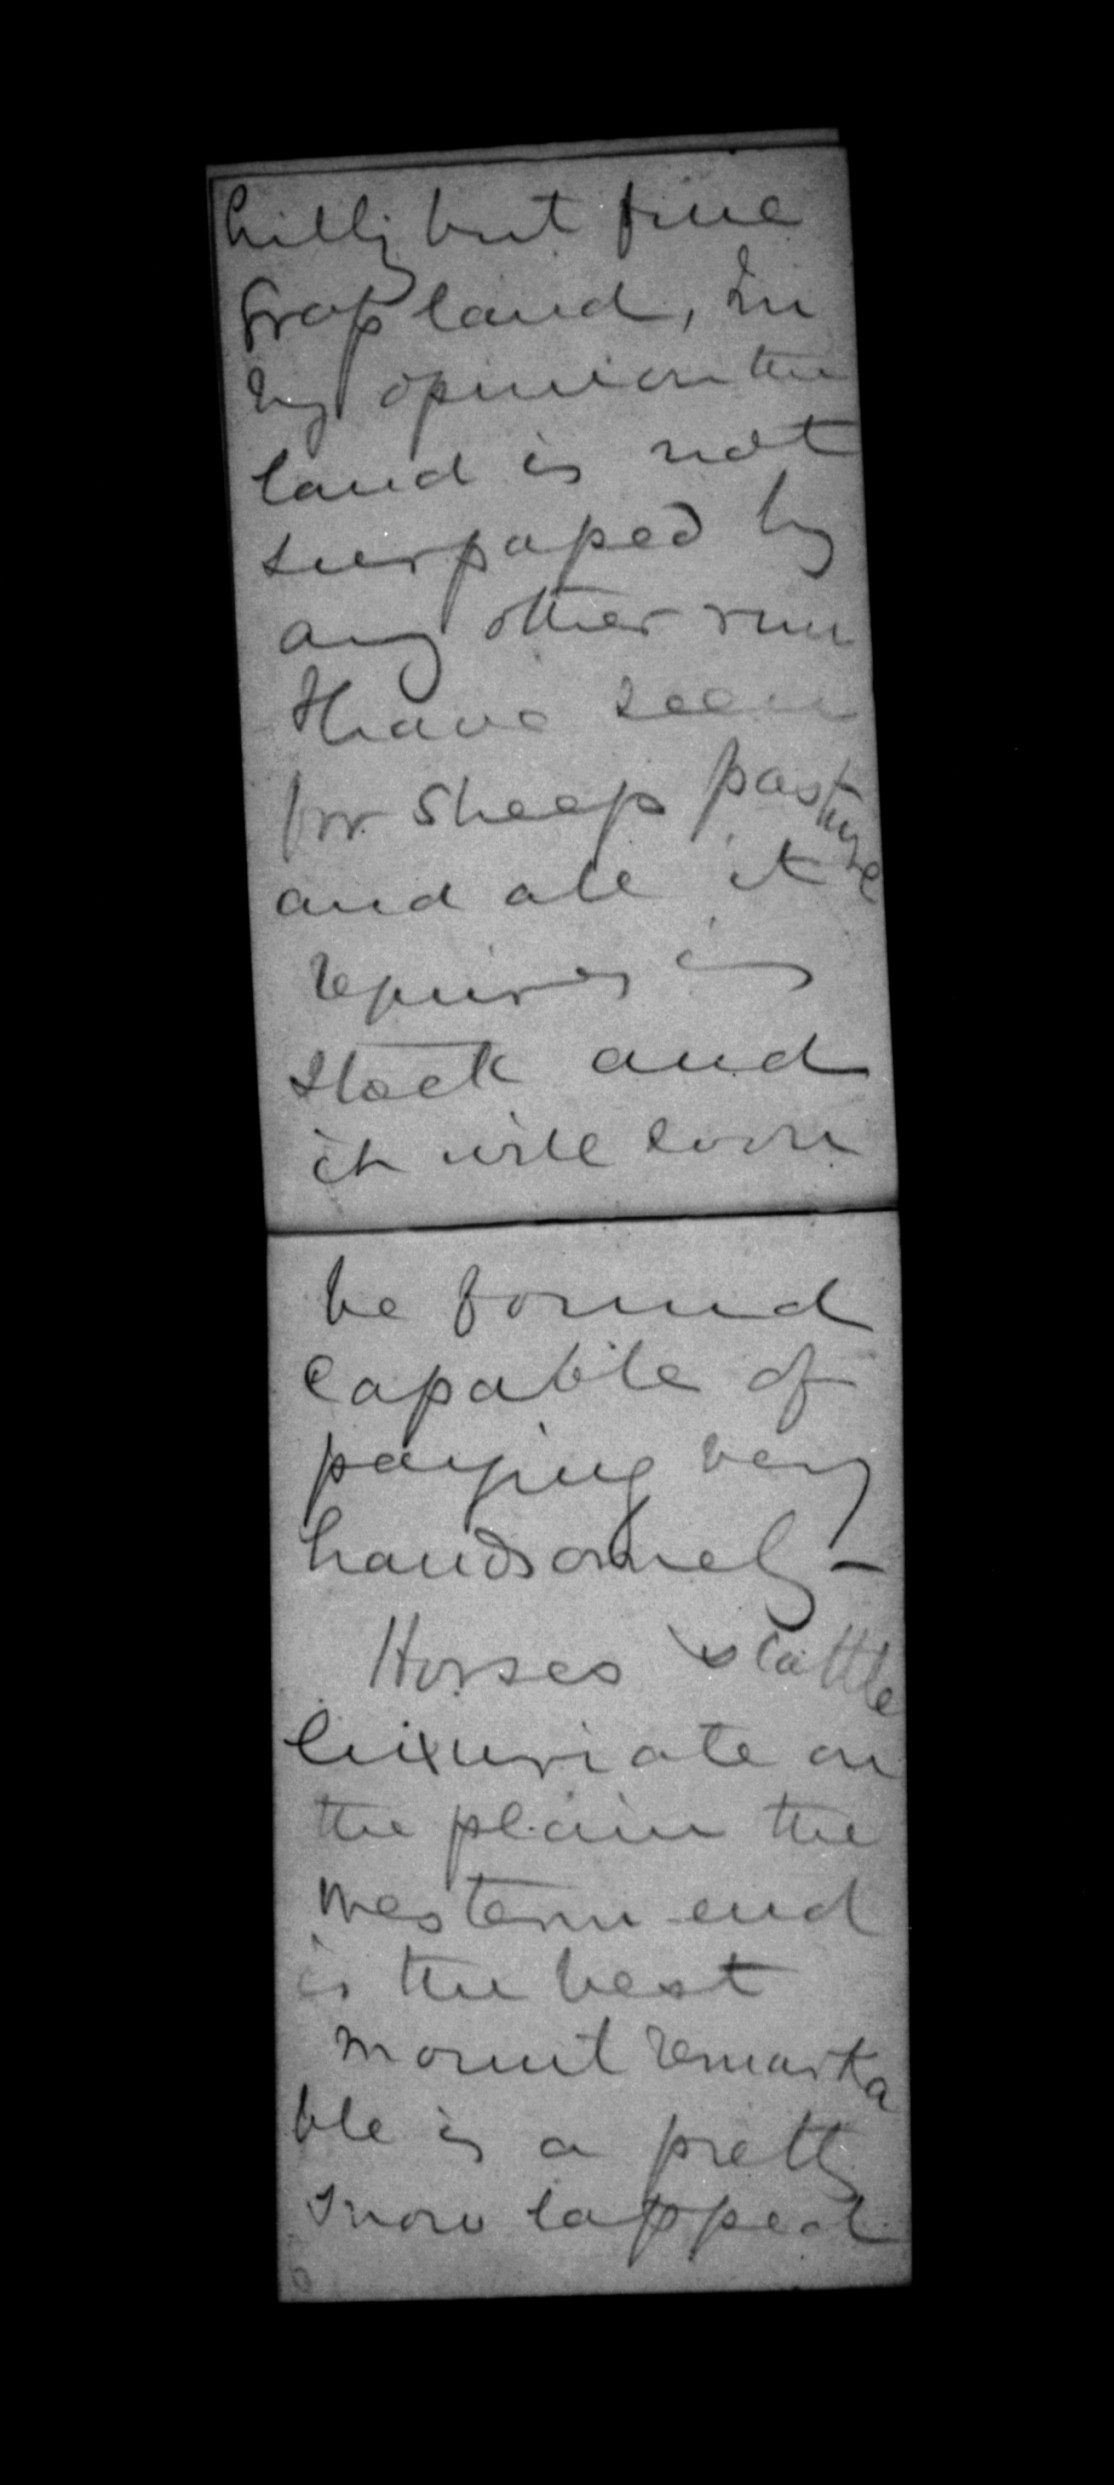 hilly but fine
Grass land, In
my opinion the
land is not
surpassed by
any other run
I have seen
for Sheep pasture
and all it
requires is
stock and
it will soon
be found
capable of
paying very
handsomely –
Horses & Cattle
luxuriate on
the plain the
western end
is the best
Mount Remarka
ble is a pretty
snow capped